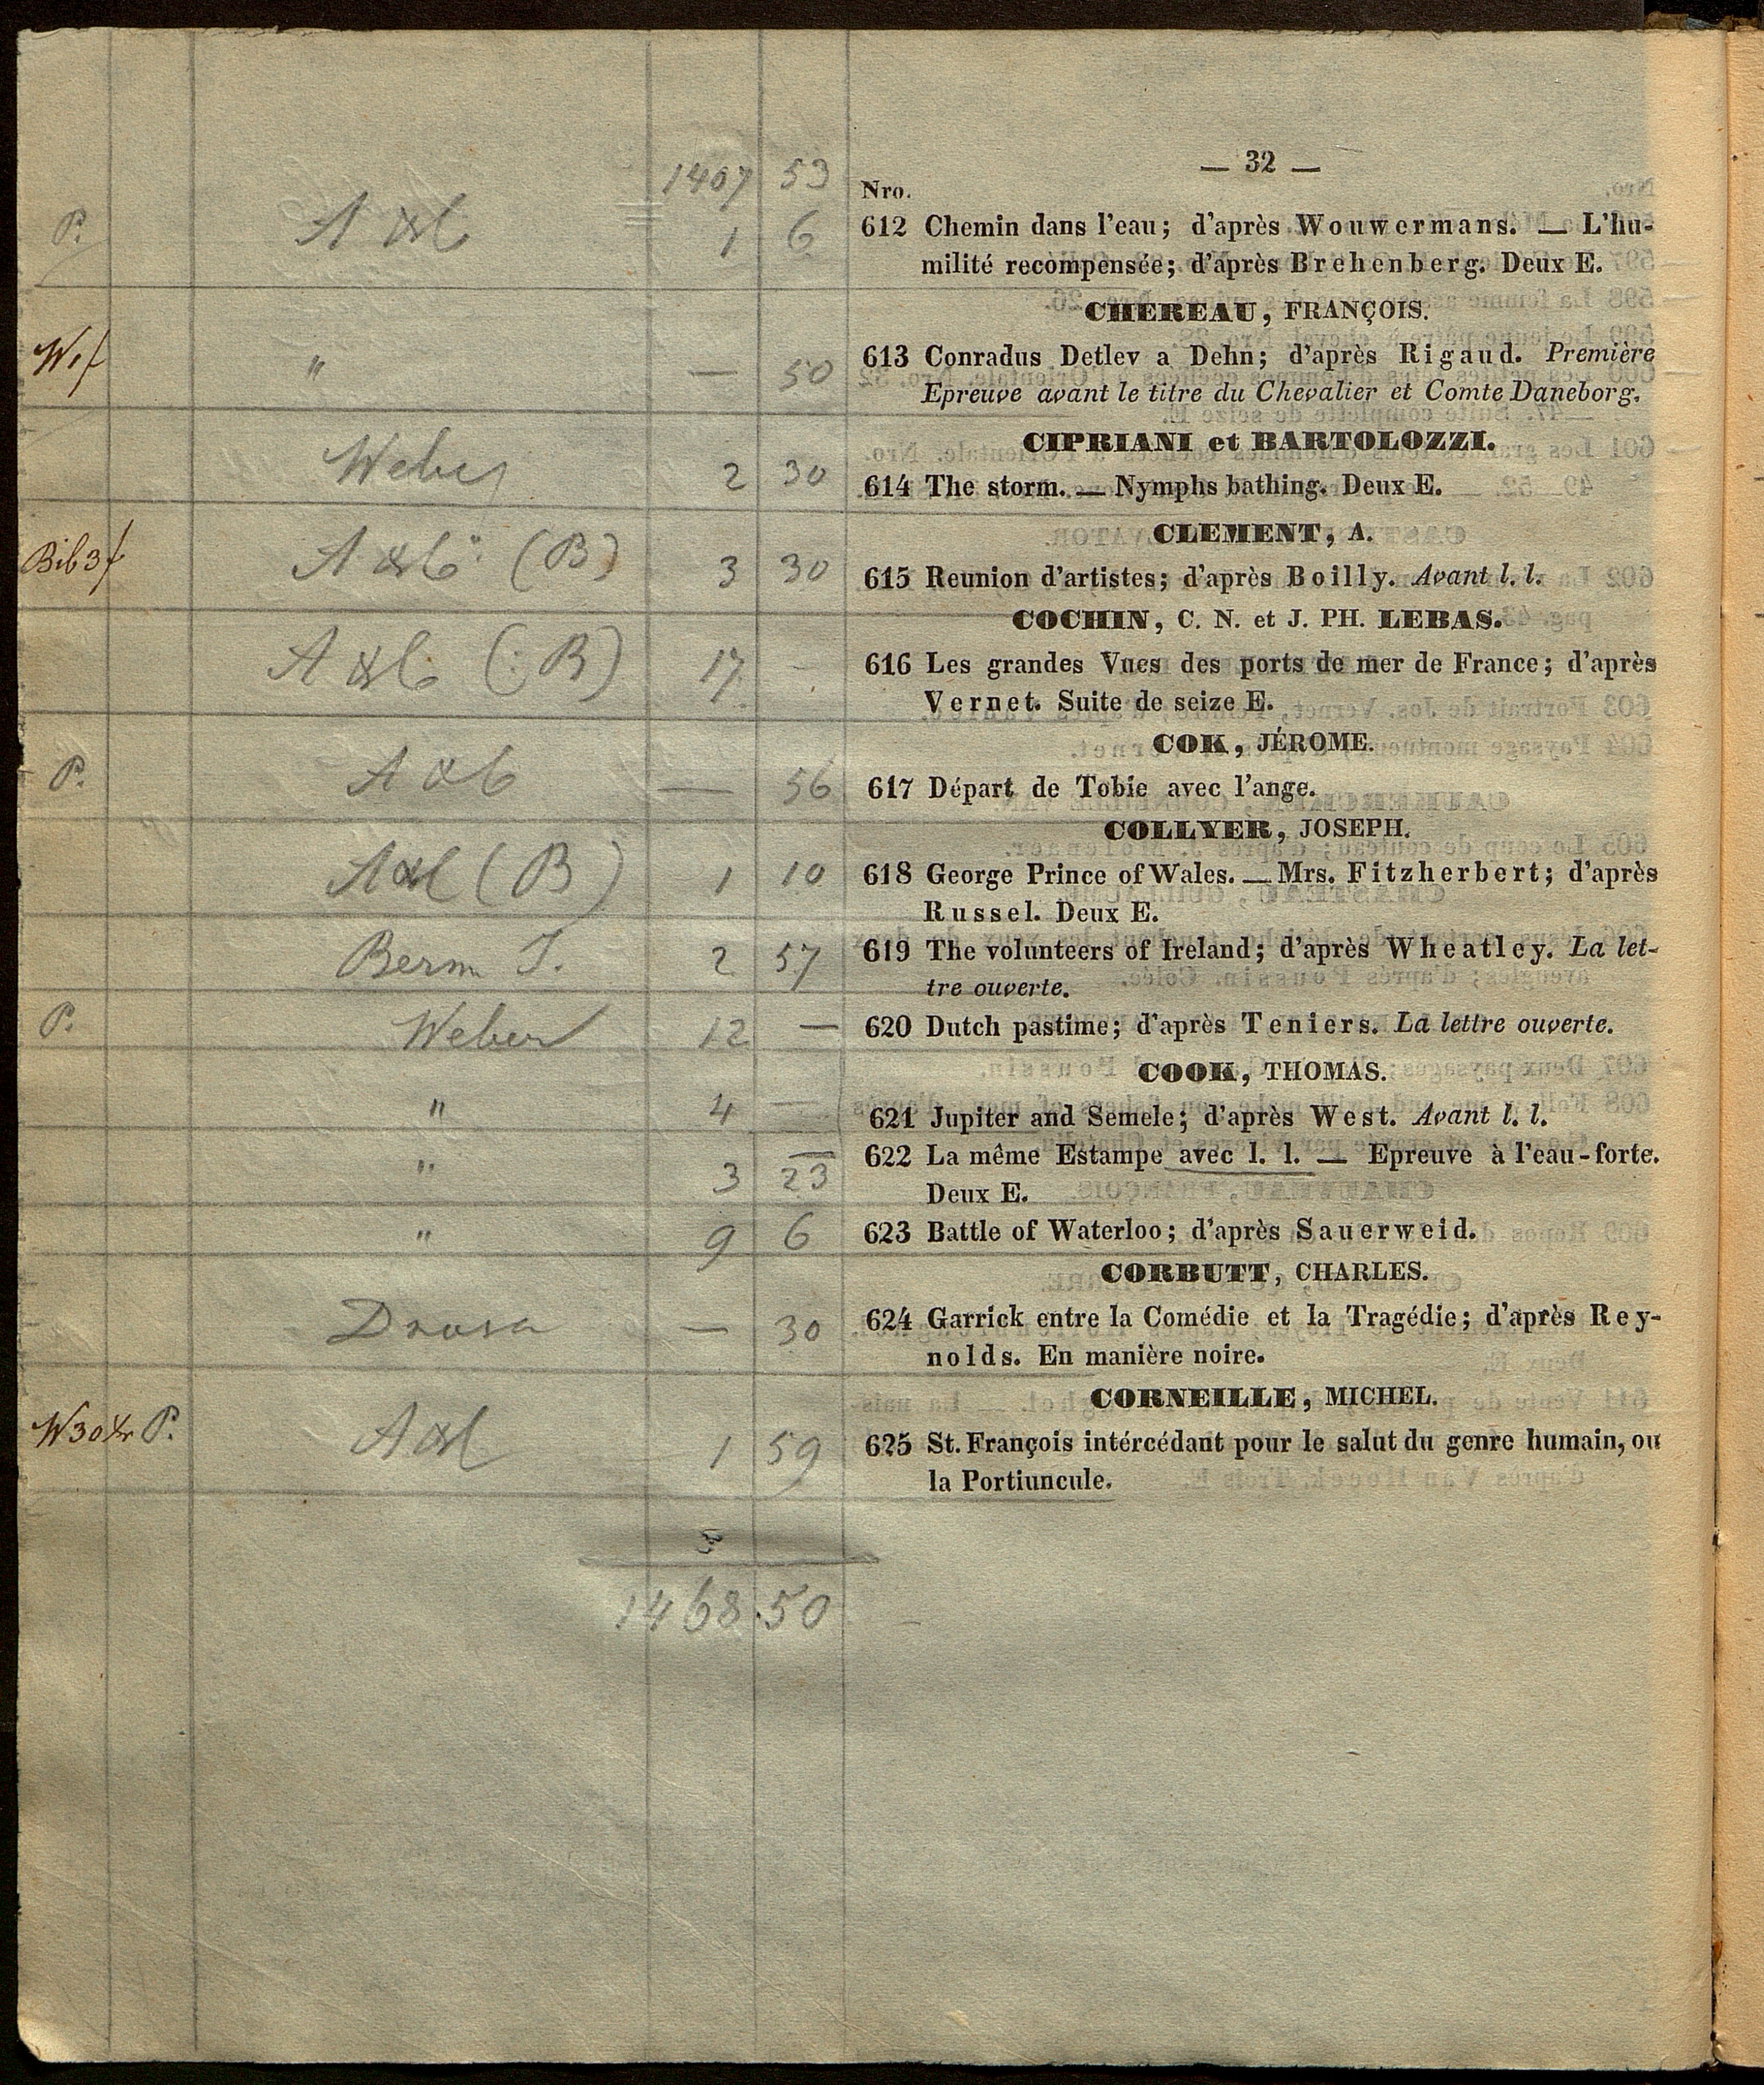 — 32 —
1407 53 Nro.
P. 1 6 612 Chemin dans l'eau; d'après Wouwermans. — L'hu-
milité recompensée; d'après Brehenberg. Deux E.
CHEREAU, FRANÇOIS.
" — 50 613 Conradus Detlev a Dehn; d'après Rigaud. Première
Epreuve avant le titre du Chevalier et Comte Daneborg.
CIPRIANI et BARTOLOZZI.
Weber 2 30 614 The storm. — Nymphs bathing. Deux E.
CLEMENT, A.
Bib 3f (B) 3 30 615 Reunion d'artistes; d'après Boilly. Avant l. l.
COCHIN, C. N. et J. PH. LEBAS.
(: B) 17 - 616 Les grandes Vues des ports de mer de France; d'après
Vernet. Suite de seize E.
COK, JÉROME.
P. — 56 617 Départ de Tobie avec l'ange.
COLLYER, JOSEPH.
(B) 1 10 618 George Prince of Wales. — Mrs. Fitzherbert; d'après
Russel. Deux E.
Berm J. 2 57 619 The volunteers of Ireland; d'après Wheatley. La let-
tre ouverte.
P. Weber 12 — 620 Dutch pastime; d'après Teniers. La lettre ouverte.
COOK, THOMAS.
" 4 — 621 Jupiter and Semele; d'après West. Avant l. l.
" 3 23 622 La même Estampe avec l. l. — Epreuve à l'eau-forte.
Deux E.
" 9 6 623 Battle of Waterloo; d'après Sauerweid.
CORBUTT, CHARLES.
— 30 624 Garrick entre la Comédie et la Tragédie; d'après Rey-
nolds. En manière noire.
CORNEILLE, MICHEL.
W 30 xr P. 1 59 625 St. François intércédant pour le salut du genre humain, ou
la Portiuncule.
1468.50